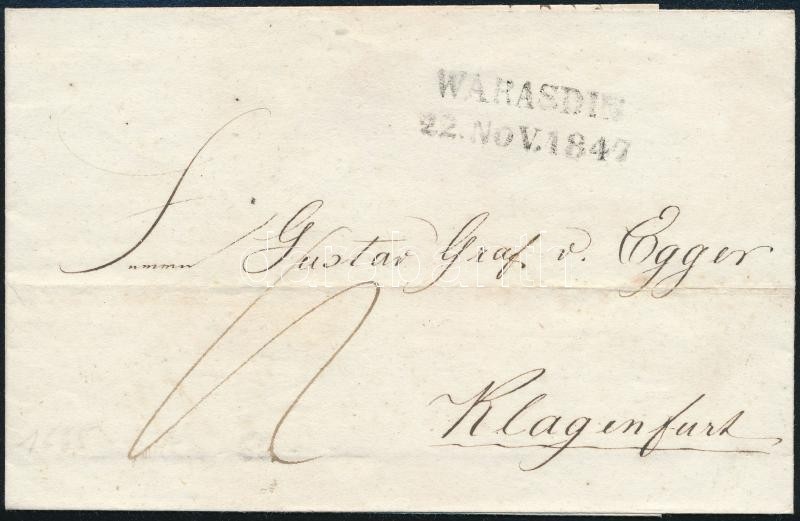 WARASDIN
22. NOV. 1847
Gustav Graf v. Egger
Klagenfurt